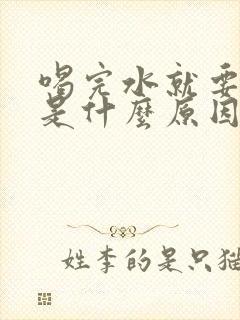 喝完水就要
是什麼原因
姓李的是只猫